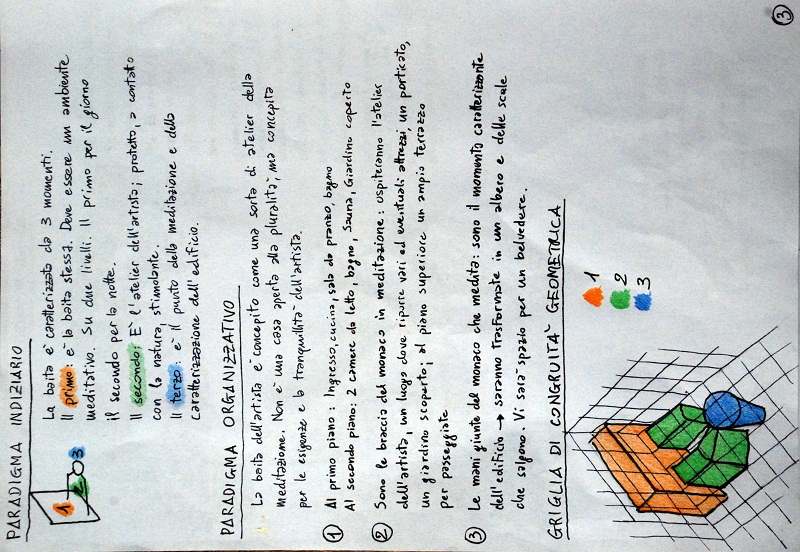 3
PARADIGMA INDIZIARIO
La baita è caratterizzata da 3 momenti.
Il primo: è la baita stessa. Deve essere un ambiente
meditativo. Su due livelli. Il primo per il giorno
il secondo per la notte.
Il secondo: E' l'atelier dell'artista; protetto, a contatto
con la natura, stimolante.
Il terzo: è il punto della meditazione e della
caratterizzazione dell'edificio.
1
2
3
PARADIGMA ORGANIZZATIVO
La baita dell'artista è concepita come una sorta di atelier della
meditazione. Non è una casa aperta alla pluralità, ma concepita
per le esigenze e la tranquillità dell'artista.
1 Al primo piano: Ingresso, cucina, sala da pranzo, bagno
Al secondo piano: 2 camere da letto, bagno, Sauna, Giardino coperto
2 Sono le braccia del monaco in meditazione: ospiteranno l'atelier
dell'artista, un luogo dove riporre vari ed eventuali attrezzi, un porticato,
un giardino scoperto; al piano superiore un ampio terrazzo
per passeggiate
3 Le mani giunte del monaco che medita: sono il momento caratterizzante
dell'edificio → saranno trasformate in un albero e delle scale
che salgono. Vi sarà spazio per un belvedere.
GRIGLIA DI CONGRUITA' GEOMETRICA
1
2
3